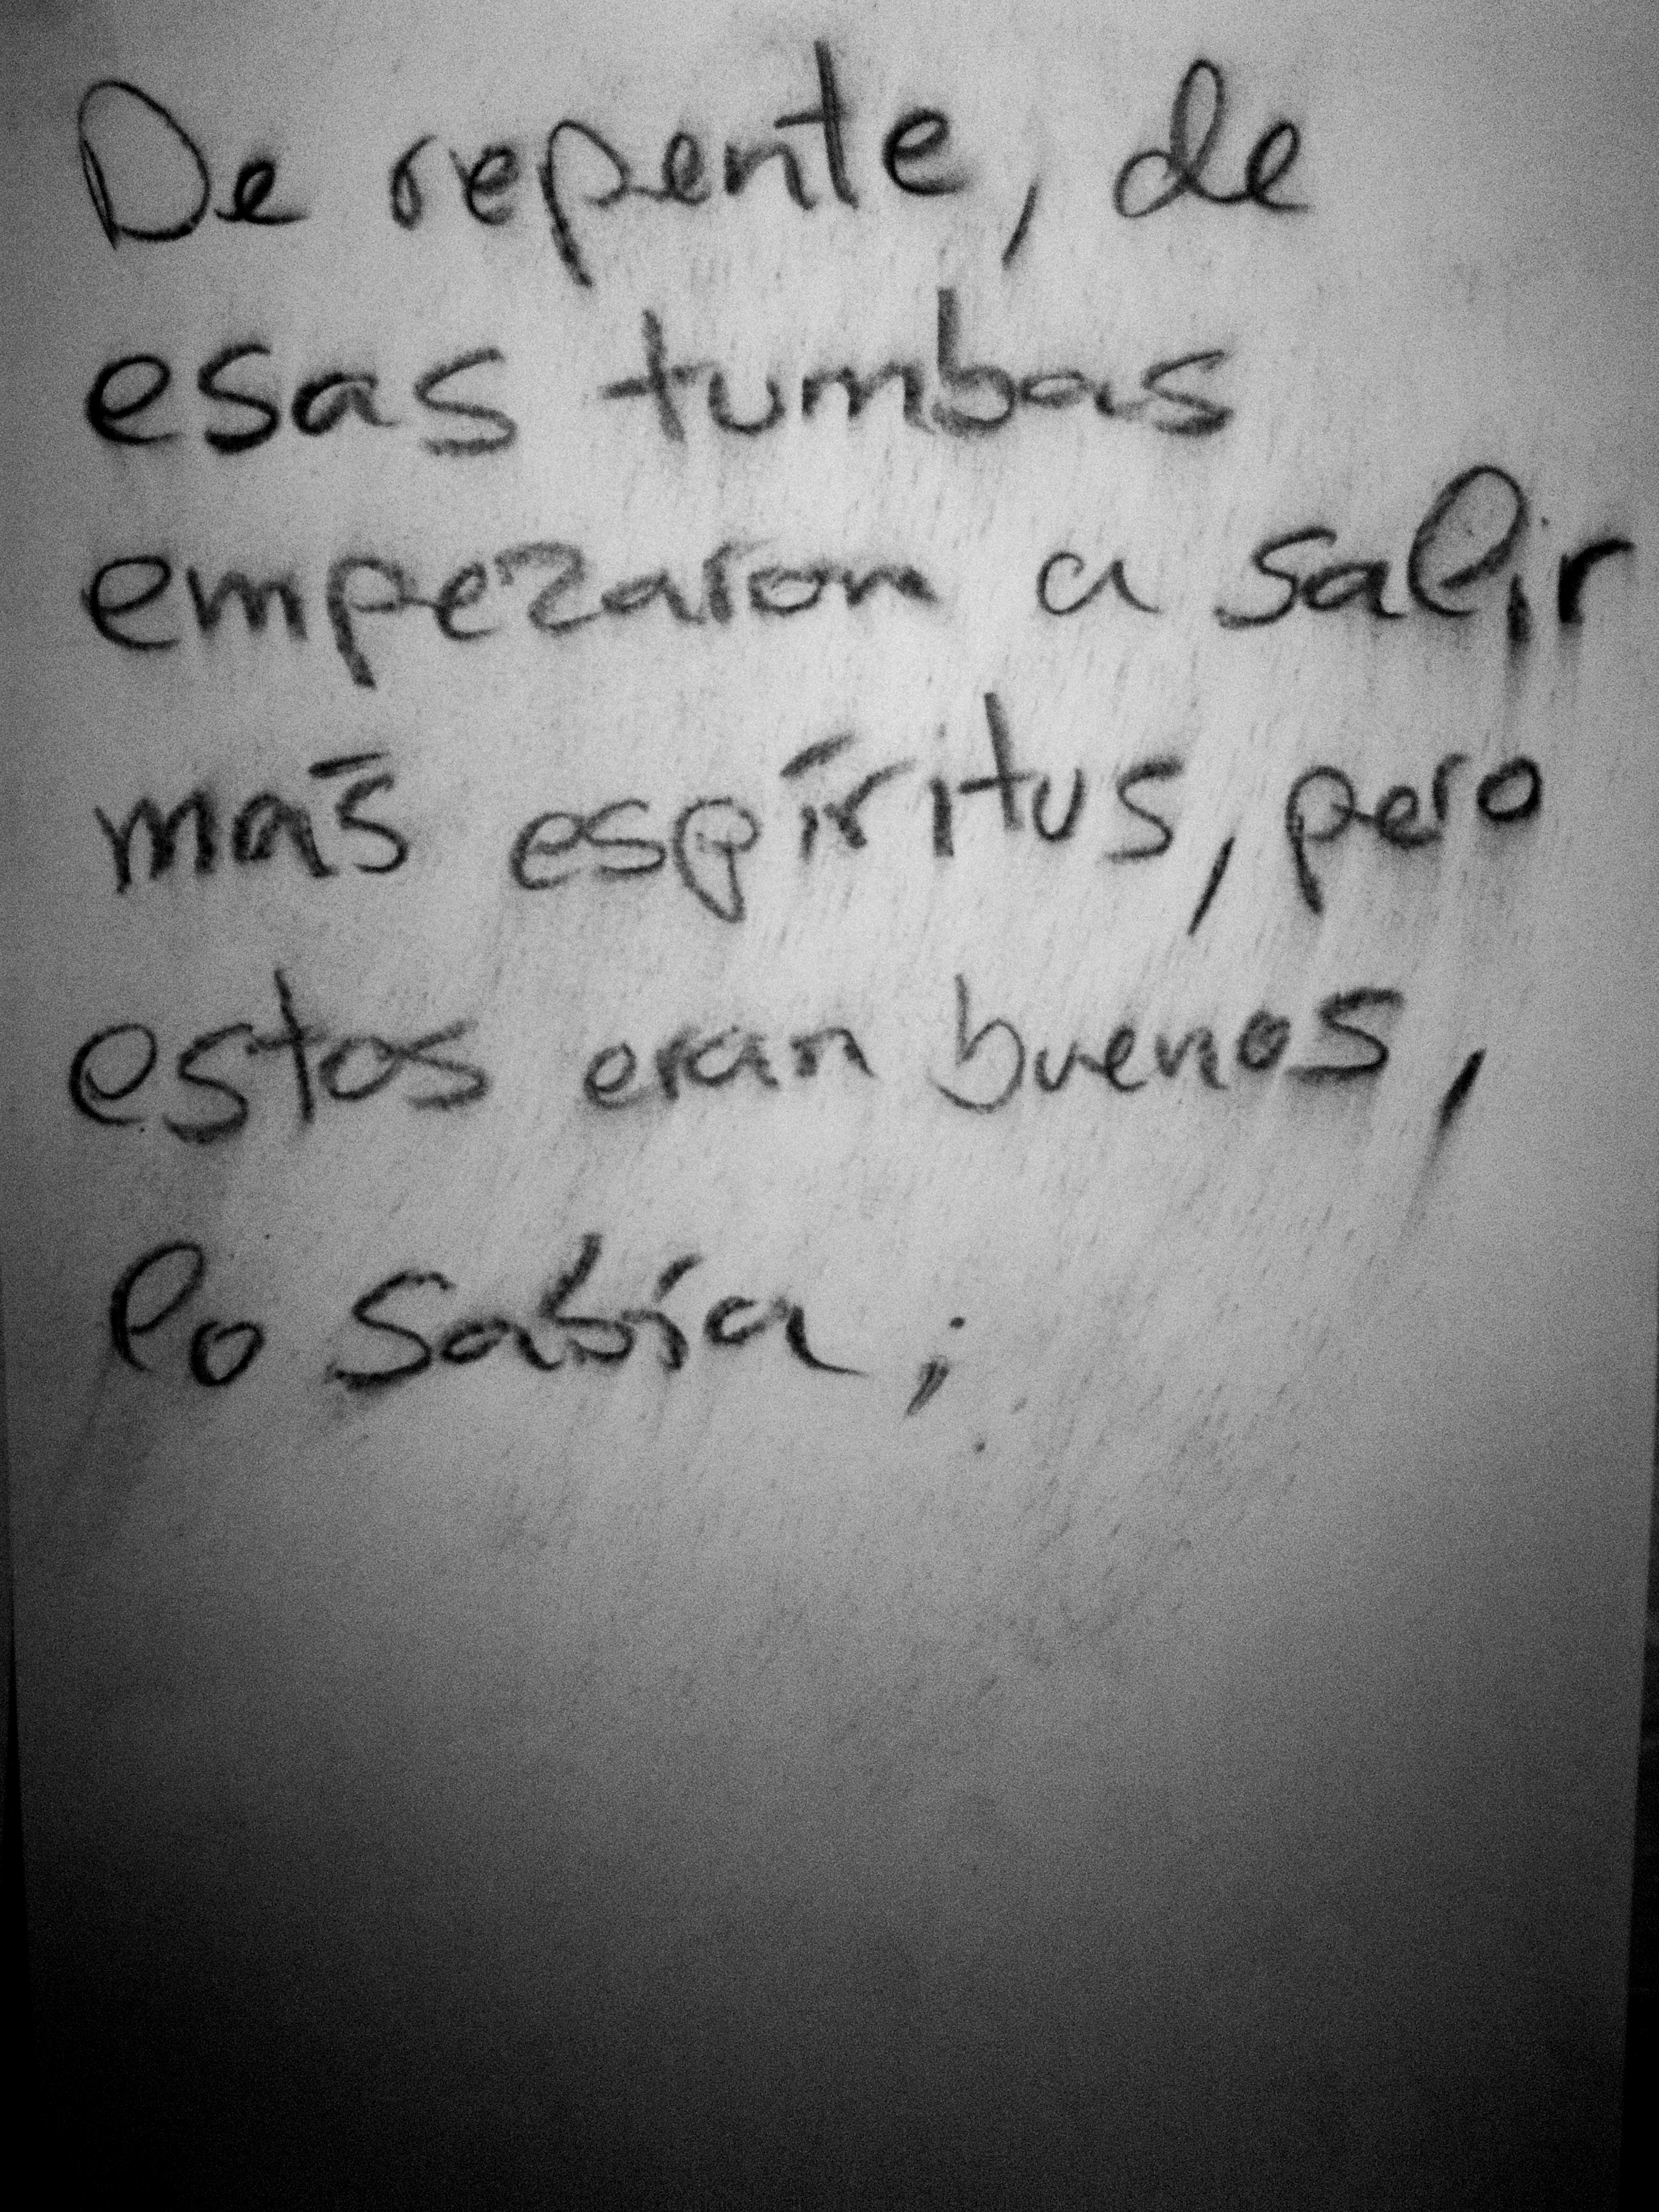 De repente, de
esas tumbas
empezaron a salir
más espíritus, pero
estos eran buenos,
lo sabía;